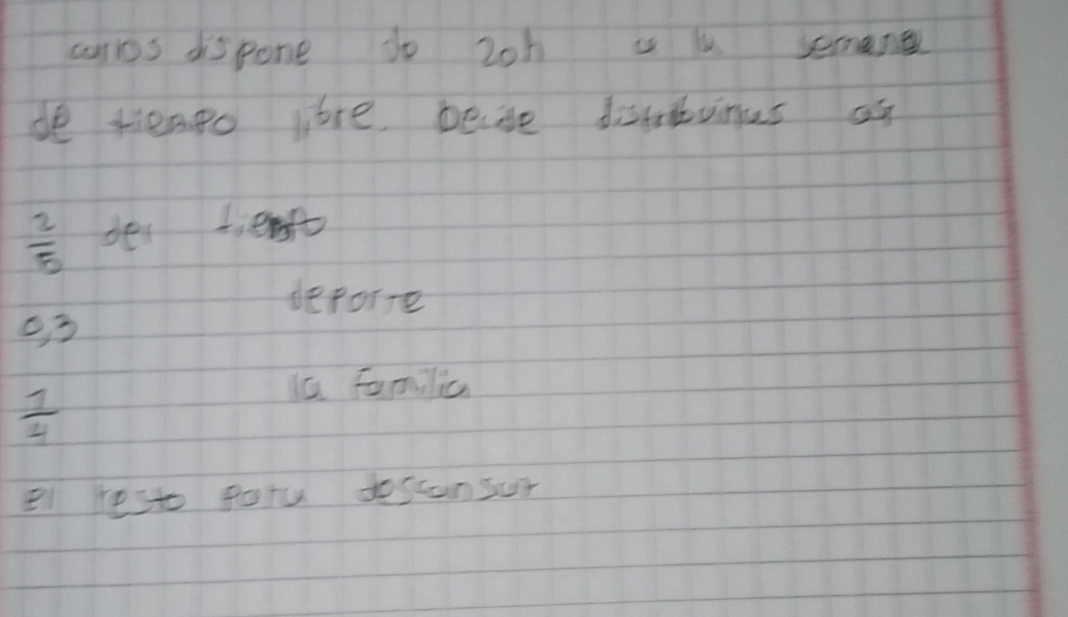 carlos dispone de 20h a la semana
de tiempo libre. Decide distribuirlas así
2/5 del tiempo
deporte
0,3
la familia
1/4
el resto para descansar